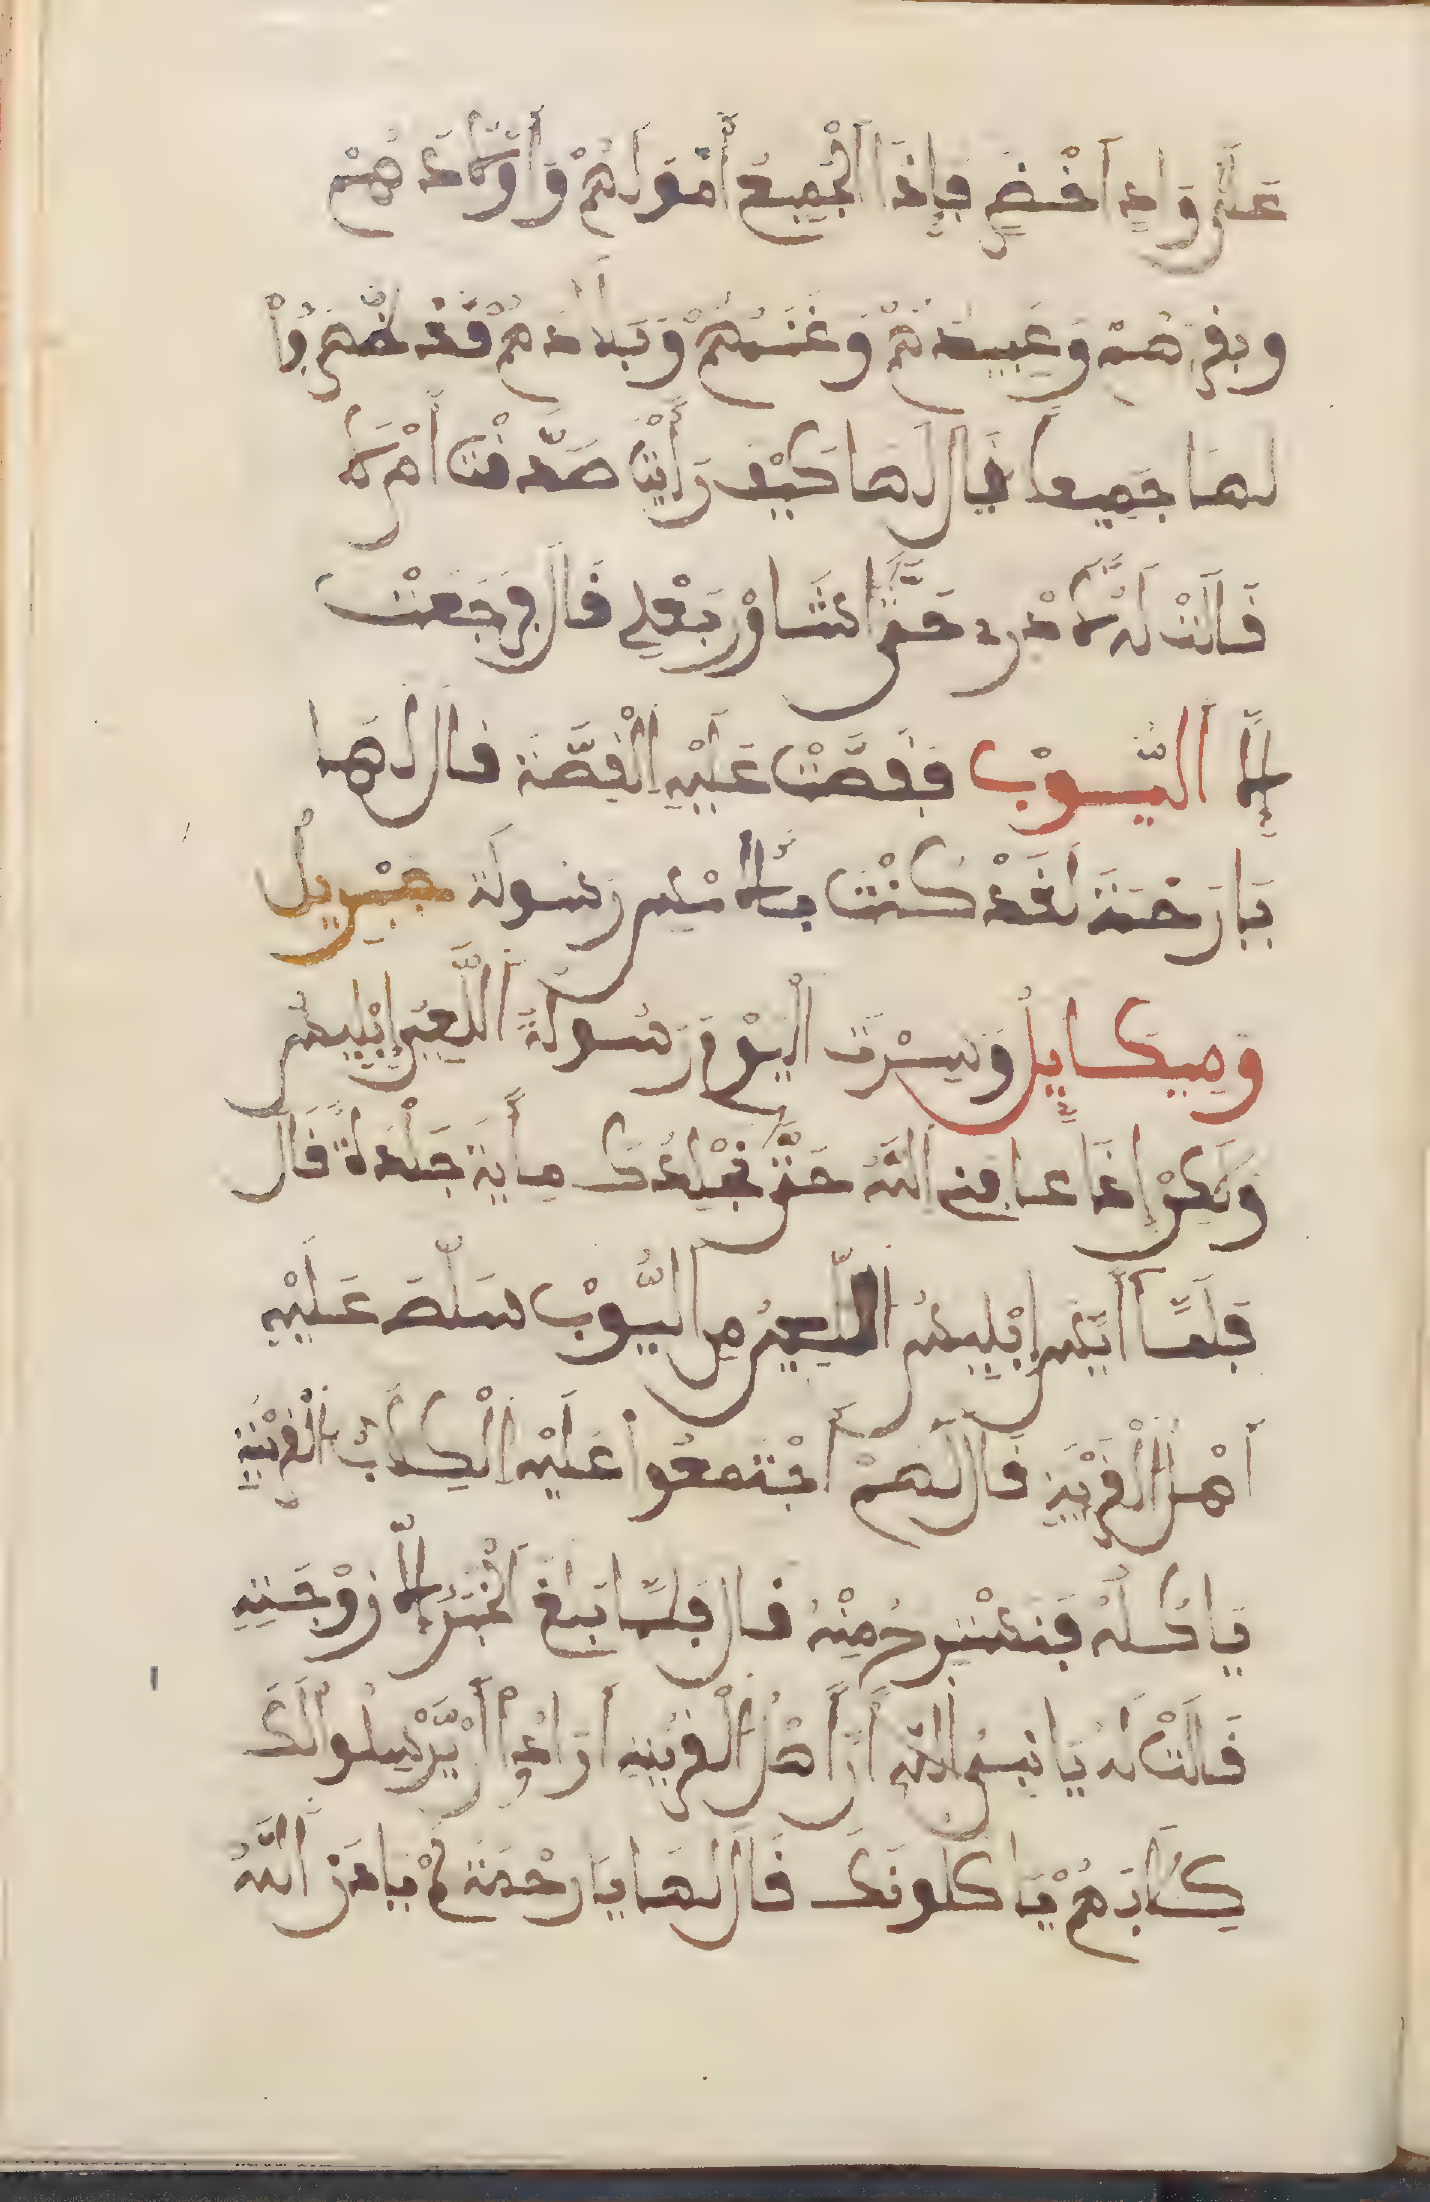 عَلَىٰ وَادٍ اَخْضَرٍ فَإِذَا الْجَمِيعُ أَمْوَالُهُمْ وَأَوْلَادُهُمْ
وبقرهُمْ وَعَبِيدهُمْ وَغَنَمُهُمْ وَبِلَادهُمْ قَدْ ظَهَرُواْ
لهَا جَمِيعاً فَال لَهَا كَيْف رَأَيْتِ صَدَّقْتِ أَمْ لَا
فَالَتْ لَهُ لَا نَدْرِي حَتَّىٰ نشَاوِرْ بَعْلِي فَالَ فَرَجَعَتْ
إِلَىٰ اَيُّوبْ فَقَصَّتْ عَلَيْهِ الْقِصَّةَ فَالَ لَهَا
يَا رَحْمَةَ لَقَدْ كُنْتِ بِالْأَمْسِ رَسُولَة جِبْرِيلْ
وَمِيكَايِلْ وَسِرْتِ الْيَوْمَ رَسُولَةً اللَّعِينِ إِبْلِيسْ
وَلَكِنْ إِذَا عافنِي اللَّهُ حَتَّىٰ نَجْلِدُكِ مِايَةَ جَلْدَةً فَالَ
فَلَمَّا أَيِسَ إِبْلِيسُ اللَّعِينُ مِن اَيُّوبْ سَلَّطَ عَلَيْهِ
أَهْلَ الْقَرْيَةِ فَالَ لَهُمْ اَجْتَمعُوا عَلَيْهِ الْكِلَابُ الْقَرْيَةِ
يَاكُلُهُ فَنَسْتَرِحُ مِنْهُ فال فَلَمَّا بَلغَ الْخَبَرُ إِلَىٰ زَوْجَتِهِ
فَالَتْ لَهُ يَا نَبِيُ اللَّهِ أَنَّ أَهْلُ الْقَرْيَةِ أَرَادُواْ أَنْ يَّرْسِلُوا لَكَ
كِلَابَهُمْ يَاكُلُونَكَ فَال لَهَا يَا رَحْمَة لَمْ يَامَرَ اللَّهُ